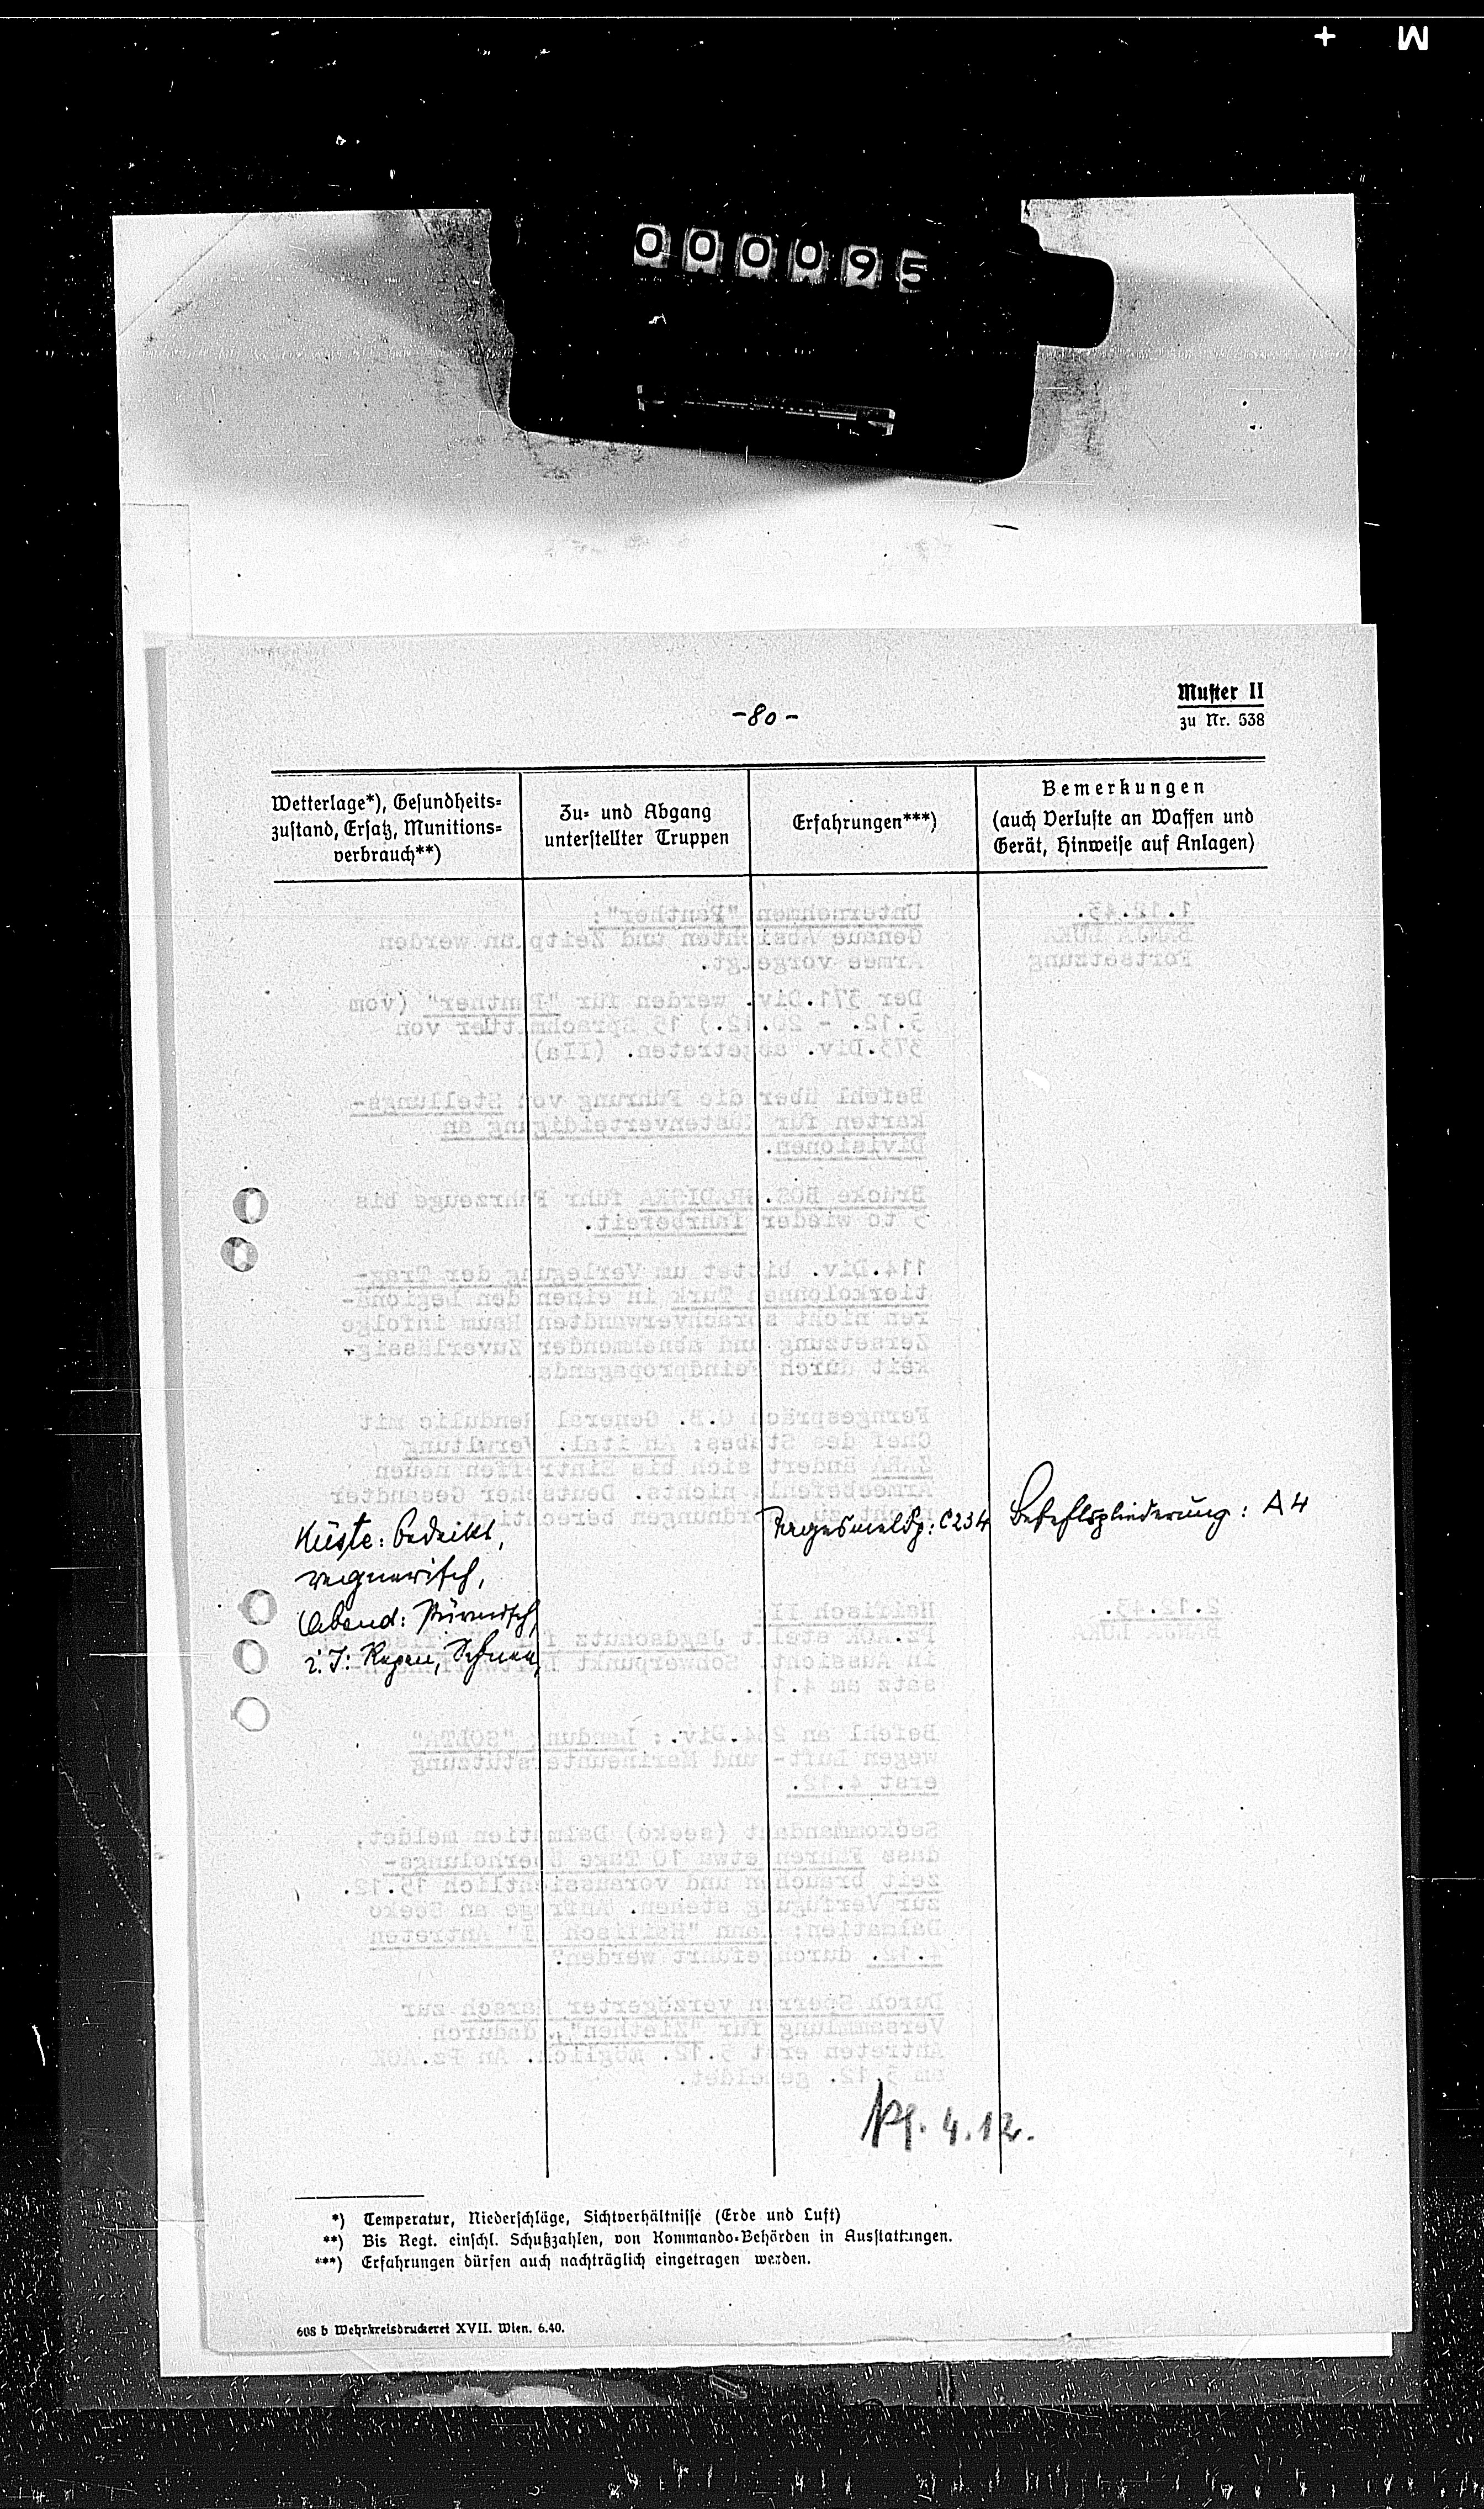 M +
000095
-80-
Muster II
zu Nr. 538
Wetterlage*), Gesundheits-
zustand, Ersatz, Munitions-
verbrauch**)
Zu- und Abgang
unterstellter Truppen
Erfahrungen***)
Bemerkungen
(auch Verluste an Waffen und
Gerät, Hinweise auf Anlagen)
1.12.43.
BANJA LUKA
Fortsetzung
Unternehmen "Panther":
Genaue Absichten und Zeitplan werden
Armee vorgelegt.
Der 371.Div. werden für "Panther" (vom
5.12. - 20.12.) 15 Sprachmittler von
373.Div. abgetreten. (IIa)
Befehl über die Führung von Stellungs-
karten für Küstenverteidigung an
Divisionen.
Brücke BOS. GRADISKA führ Fahrzeuge bis
5 to wieder fahrbereit.
114.Div. bittet um Verlegung der Trag-
tierkolonnen Turk in einen den Legionä-
ren nicht sprachverwandten Raum infolge
Zersetzung und abnehmender Zuverlässig-
keit durch Feindpropaganda.
Ferngespräch O.B. General Rendulic mit
Chef des Stabes: An ital. Verwltung
ZARA ändert sich bis Eintreffen neuen
Armeebefehls nichts. Deutscher Gesandter
Küste: bedeckt,
regnerisch,
Abend: stürmisch,
i. J: Regen, Schnee,
Tagesmeldg: C234
Befehlsgliederung: A4
2.12.43.
BANJA LUKA
Herbstgewitter II
Pz.AOK stellt Jagdschutz
in Aussicht. Schwerpunkt
satz am 4.1
Befehl an 264.Div.: Landung "SOLTA"
wegen Luft- und Marineunterstützung
erst 4.12.
Seekommandant (seeko) Dalmatien meldet,
dass Fähren etwa 10 Tage Überholungs-
zeit brauchen und voraussichtlich 15.12.
zur Verfügung stehen. Anfrage an Seeko
Dalmatien: Kann "Haifisch II" Antreten
4.12. durchgeführt werden?
Durch Sperren verzögerter Marsch zur
Versammlung für "Ziethen", dadurch
Antreten erst 5.12. möglich. An Pz.AOK
gemeldet.
4.12.
*) Temperatur, Niederschläge, Sichtverhältnisse (Erde und Luft)
**) Bis Regt. einschl. Schußzahlen, von Kommando-Behörden in Ausstattungen.
***) Erfahrungen dürfen auch nachträglich eingetragen werden.
608 b Wehrkreisdruckerei XVII. Wien. 6.40.